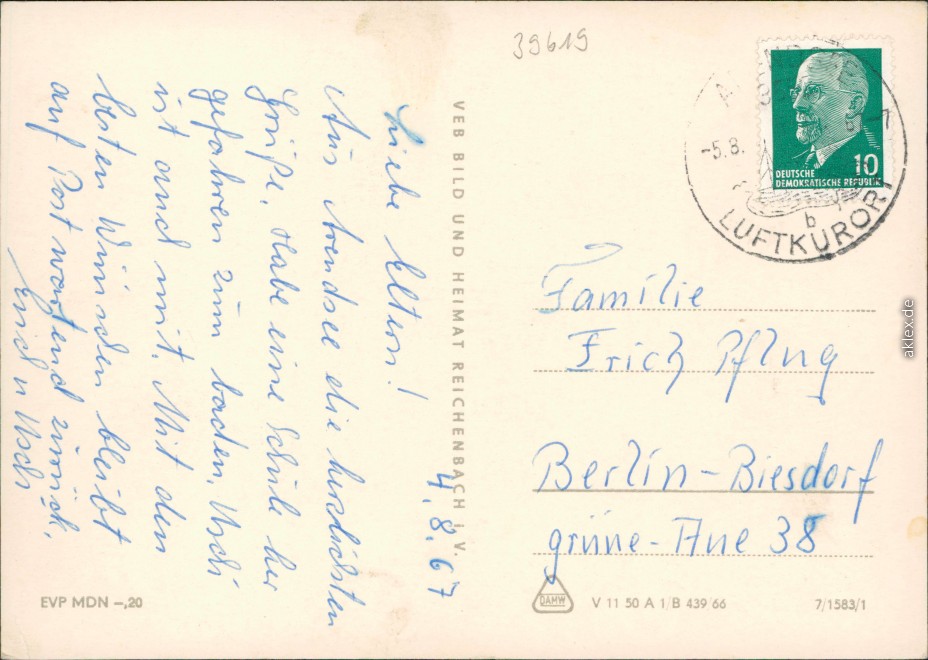 39619
DEUTSCHE
DEMOKRATISCHE REPUBLIK 10
-5.8.
b
LUFTKURORT
4.8.67
Liebe Eltern!
Aus Arendsee die herzlichsten
Grüße. Habe eine Schule her
gefahren zum baden. Uschi
ist auch mit. Mit den
besten Wünschen bleibt
auf Post wartend zurück.
Erich u Uschi
VEB BILD UND HEIMAT REICHENBACH i. V.
Familie
Erich Pflug
Berlin-Biesdorf
grüne-Aue 38
EVP MDN –,20
DAMW
V 11 50 A 1/B 439/66
7/1583/1
aklex.de